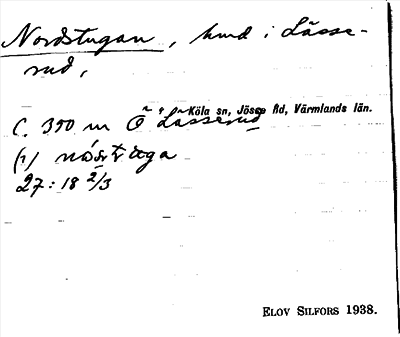 Nordstugan, hmd i Lässe-
rud,
Köla sn, Jösse hd, Värmlands län.
C. 350 m Ö Lässerud
(1) nåṣtuga
27:18 2/3
ELOV SILFORS 1938.